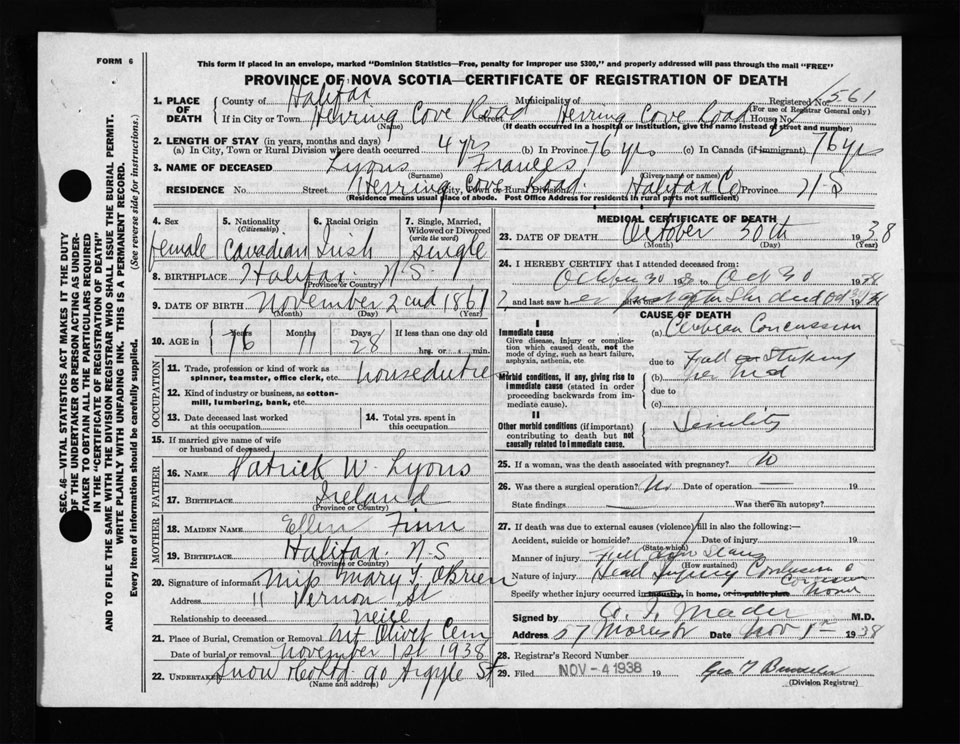 FORM 6
This form if placed in an envelope, marked "Dominion Statistics—Free, penalty for improper use $300," and properly addressed will pass through the mail "FREE"
PROVINCE OF NOVA SCOTIA—CERTIFICATE OF REGISTRATION OF DEATH
SEC. 46—VITAL STATISTICS ACT MAKES IT THE DUTY
OF THE UNDERTAKER OR PERSON ACTING AS UNDER-
TAKER TO OBTAIN ALL THE PARTICULARS REQUIRED
IN THE "CERTIFICATE OF REGISTRATION OF DEATH"
AND TO FILE THE SAME WITH THE DIVISION REGISTRAR WHO SHALL ISSUE THE BURIAL PERMIT.
WRITE PLAINLY WITH UNFADING INK. THIS IS A PERMANENT RECORD.
Every item of information should be carefully supplied. (See reverse side for instructions.)
1. PLACE OF DEATH
County of Halifax Municipality of Registered No. 561
(For use of Registrar General only)
If in City or Town Herring Cove Road Street Herring Cove Road House No.
(Name) (If death occurred in a hospital or institution, give the name instead of street and number)
2. LENGTH OF STAY (in years, months and days)
(a) In City, Town or Rural Division where death occurred 4 yrs (b) In Province 76 yrs (c) In Canada (if immigrant) 76 yrs
3. NAME OF DECEASED Lyons Frances
(Surname) (Given name or names)
RESIDENCE No. Street Herring Cove Road City, Town or Rural Division Halifax Co Province N-S
(Residence means usual place of abode. Post Office Address for residents in rural parts not sufficient)
4. Sex female
5. Nationality (Citizenship) Canadian
6. Racial Origin Irish
7. Single, Married, Widowed or Divorced (write the word) single
8. BIRTHPLACE Halifax N.S.
(Province or Country)
9. DATE OF BIRTH November 2nd 1861
(Month) (Day) (Year)
10. AGE in Years 76 Months 11 Days 28 If less than one day old hrs. or min.
OCCUPATION
11. Trade, profession or kind of work as spinner, teamster, office clerk, etc. houseduties
12. Kind of industry or business, as cotton-mill, lumbering, bank, etc.
13. Date deceased last worked at this occupation
14. Total yrs. spent in this occupation
15. If married give name of wife or husband of deceased
FATHER
16. NAME Patrick W. Lyons
17. BIRTHPLACE Ireland
(Province or Country)
MOTHER
18. MAIDEN NAME Ellen Finn
19. BIRTHPLACE Halifax. N-S
(Province or Country)
20. Signature of informant Miss Mary F. O'Brien
Address 11 Vernon St
Relationship to deceased neice
21. Place of Burial, Cremation or Removal Mt Olivet Cem
Date of burial or removal November 1st 1938
22. UNDERTAKER Snow Co Ltd. 90 Argyle St
(Name and address)
MEDICAL CERTIFICATE OF DEATH
23. DATE OF DEATH October 30th 1938
(Month) (Day) (Year)
24. I HEREBY CERTIFY that I attended deceased from:
October 30 to Oct 30 1938
and last saw her
CAUSE OF DEATH
I
Immediate cause
Give disease, injury or complication which caused death, not the mode of dying, such as heart failure, asphyxia, asthenia, etc.
(a) Concussion
due to Fall Striking
Morbid conditions, if any, giving rise to immediate cause (stated in order proceeding backwards from immediate cause).
(b) her head
due to
(c)
II
Other morbid conditions (if important) contributing to death but not causally related to immediate cause.
Senility
25. If a woman, was the death associated with pregnancy? No
26. Was there a surgical operation? No Date of operation — 19
State findings — Was there an autopsy?
27. If death was due to external causes (violence) fill in also the following:—
Accident, suicide or homicide? Date of injury 19
(State which)
Manner of injury Fell down stairs
(How sustained)
Nature of injury Head Injury
Specify whether injury occurred in industry, in home, or in public place. home
Signed by Mader M.D.
Address 57 Morris St Date Nov 1st 1938
28. Registrar's Record Number
29. Filed NOV - 4 1938 19
(Division Registrar)